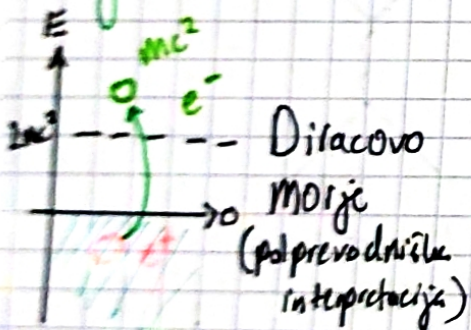 E
mc²
e⁻
2mc²
Diracovo
morje
(polprevodniška
interpretacija)